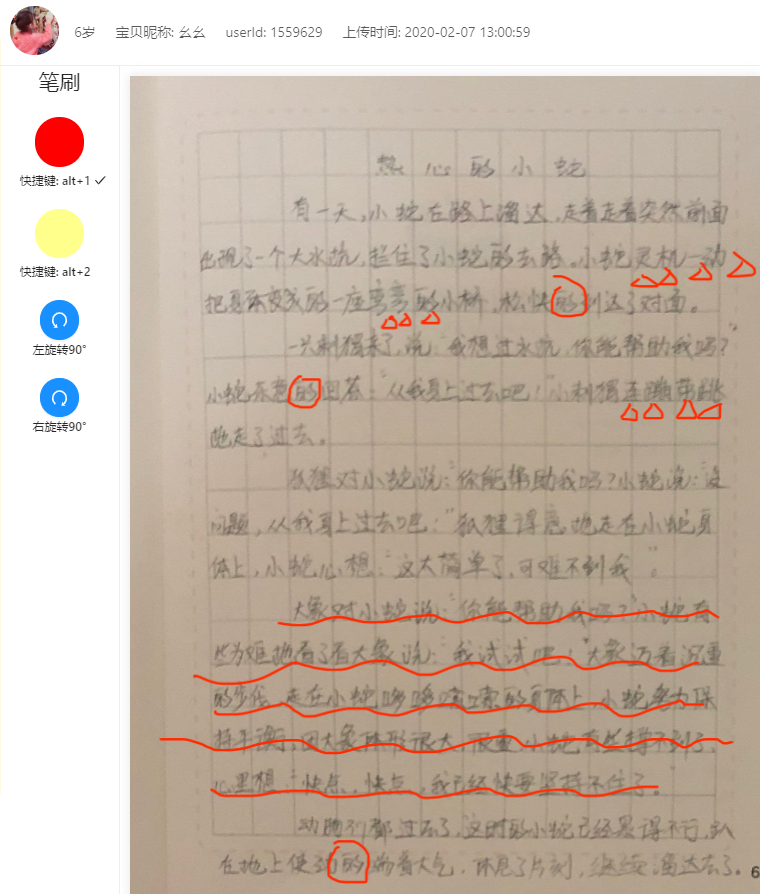 6岁 宝贝昵称: 幺幺 userId: 1559629 上传时间: 2020-02-07 13:00:59
笔刷
快捷键: alt+1
快捷键: alt+2
左旋转90°
右旋转90°
热心的小蛇
有一天,小蛇在路上溜达,走着走着突然前面
出现了一个大水坑,拦住了小蛇的去路。小蛇灵机一动
把身体变成的一座弯弯的小桥,松快的到达了对面。
一只刺猬来了,说:“我想过水坑,你能帮助我吗?”
小蛇乐意的回答:“从我身上过去吧!”小刺猬连蹦带跳
地走了过去。
狐狸对小蛇说:“你能帮助我吗?”小蛇说:“没
问题,从我身上过去吧!”狐狸得意地走在小蛇身
体上,小蛇心想:“这太简单了,可难不到我”。
大象对小蛇说:“你能帮助我吗?”小蛇有
些为难地看了看大象说:“我试试吧!”大象迈着沉重
的步伐,走在小蛇哆哆嗦嗦的身体上,小蛇努力保
持平衡,因大象体形很大,很重,小蛇有些撑不到了,
心里想:“快点,快点,我已经快要坚持不住了。”
动物们都过去了,这时的小蛇已经累得不行,趴
在地上使劲的喘着大气,休息了片刻,继续溜达去了。
6